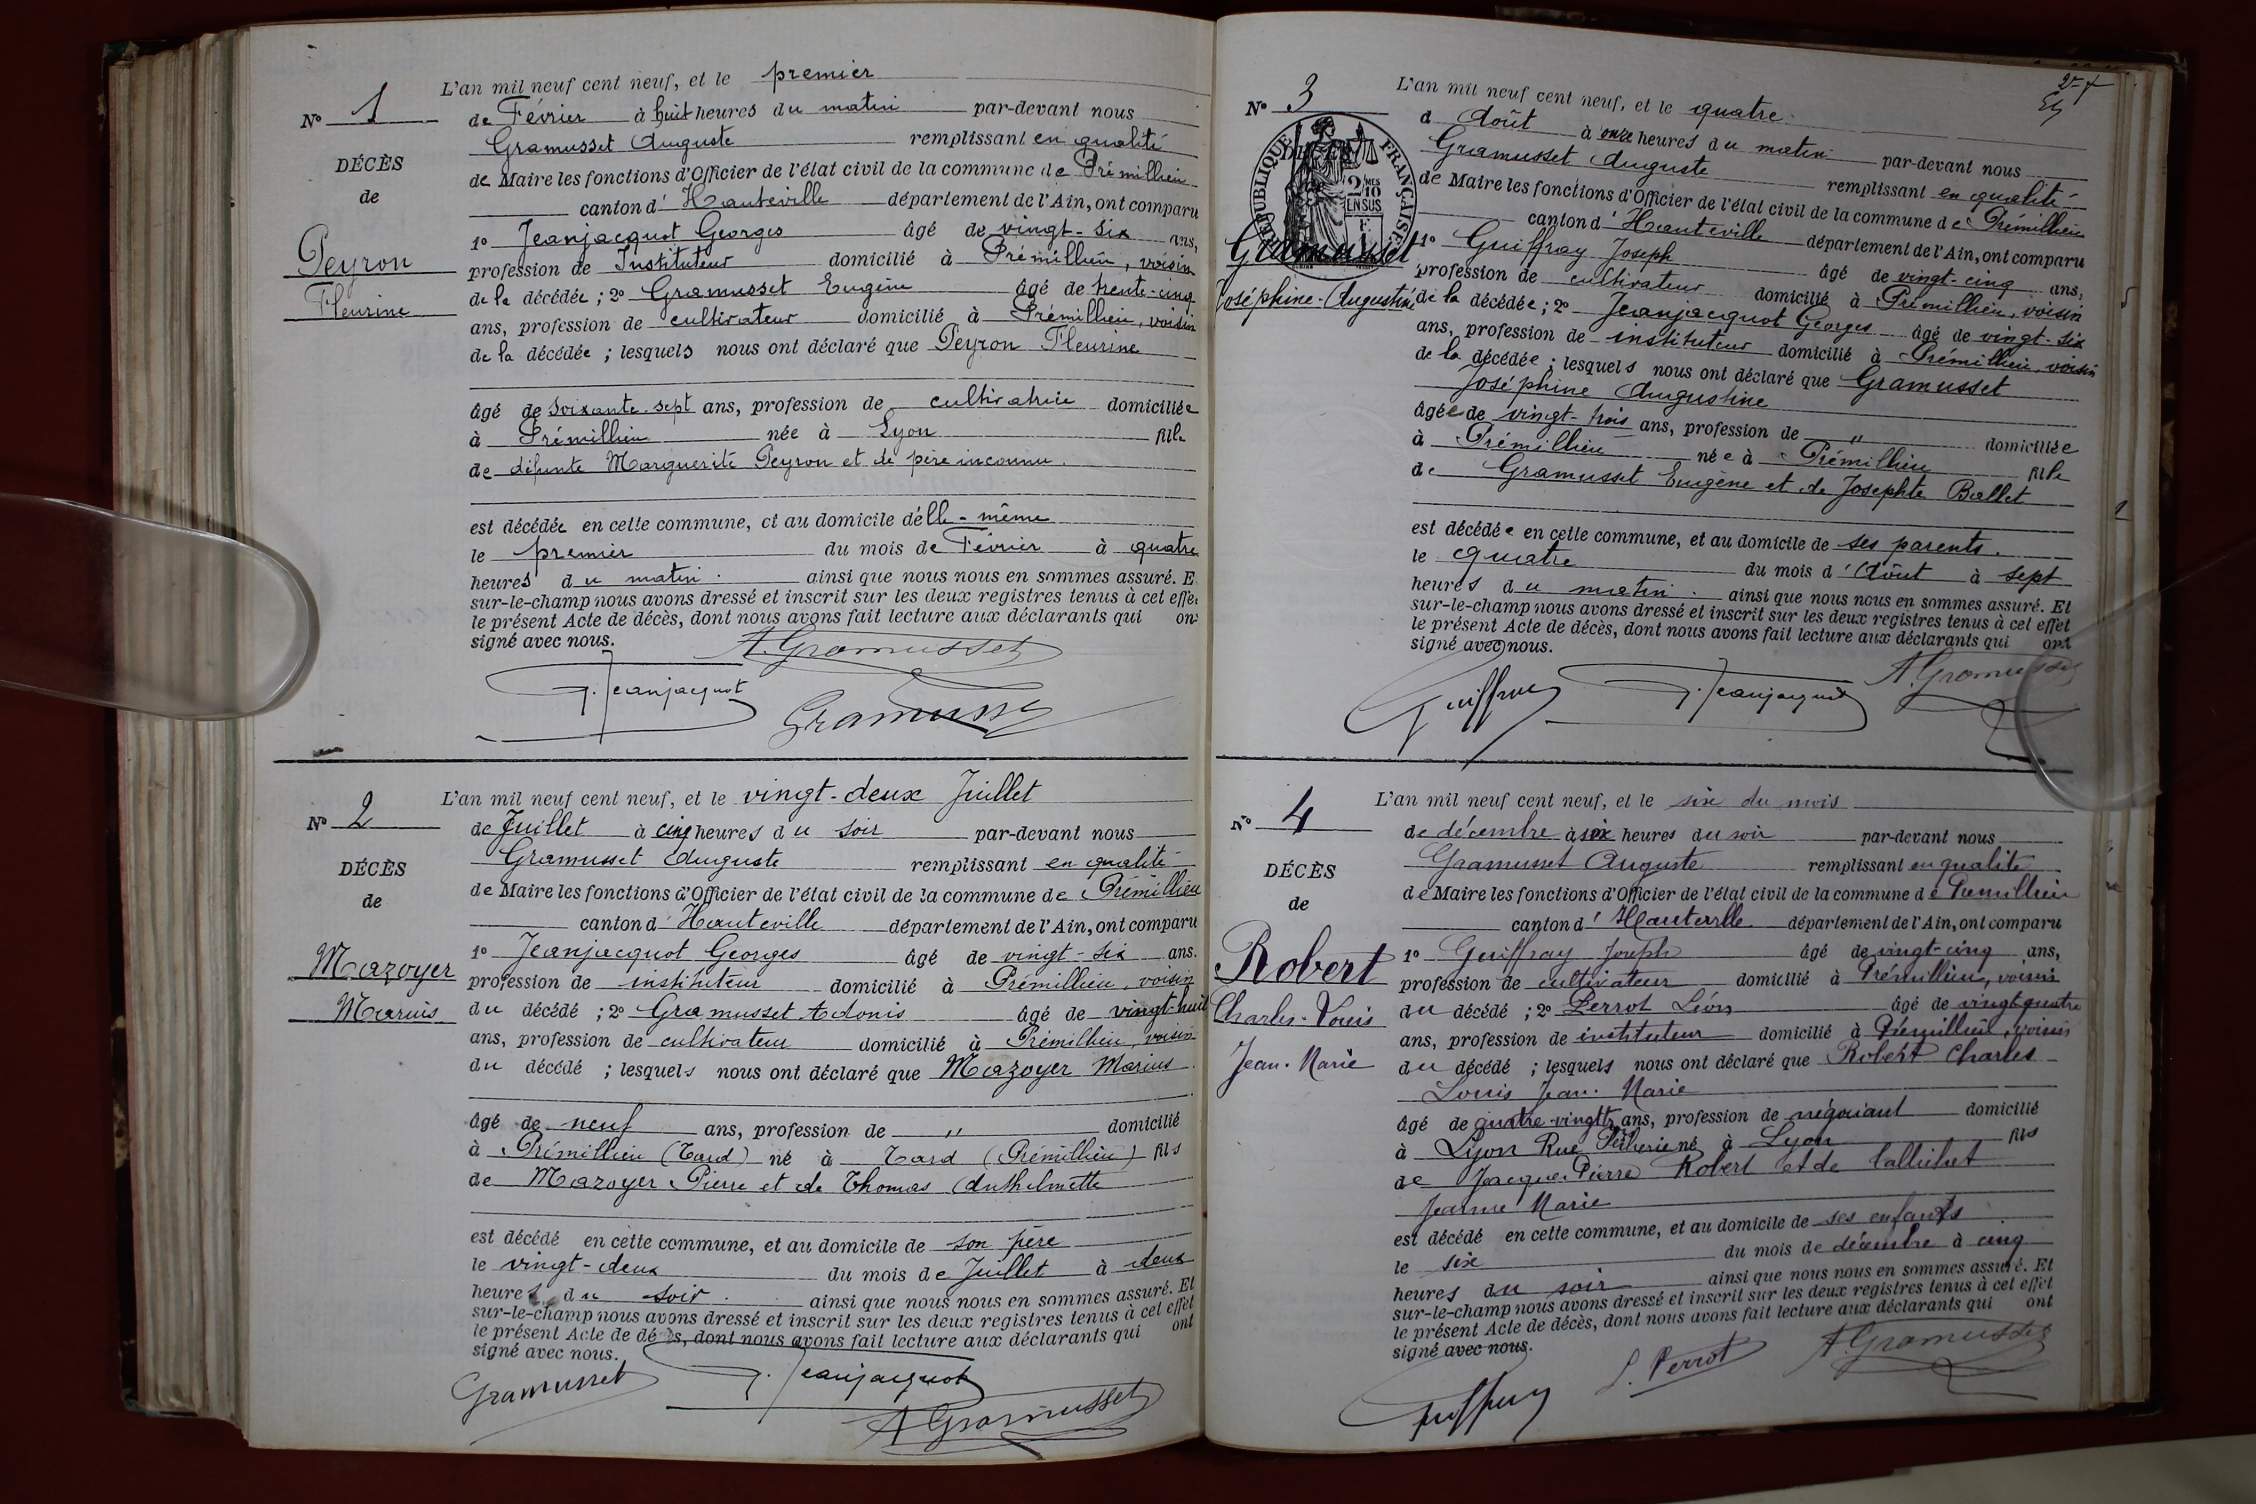 L'an mil neuf cent neuf, et le premier
N° 1
de Février à huit heures du matin par-devant nous
Gramusset Auguste remplissant en qualité
DÉCÈS
de Maire les fonctions d'Officier de l'état civil de la commune de Prémillieu
de
canton d'Hauteville département de l'Ain, ont comparu
1° Jeanjacquot Georges âgé de vingt-six ans,
Peyron
profession de Instituteur domicilié à Prémillieu, voisin
Fleurine
de la décédée ; 2° Gramusset Eugène âgé de trente-cinq
ans, profession de cultivateur domicilié à Prémillieu, voisin
de la décédée ; lesquels nous ont déclaré que Peyron Fleurine
âgé de soixante-sept ans, profession de cultivatrice domiciliée
à Prémillieu née à Lyon fille
de défunte Marguerite Peyron et de père inconnu.
est décédée en cette commune, et au domicile d'elle-même
le premier du mois de Février à quatre
heures du matin. ainsi que nous nous en sommes assuré. E
sur-le-champ nous avons dressé et inscrit sur les deux registres tenus à cet effe
le présent Acte de décès, dont nous avons fait lecture aux déclarants qui on
signé avec nous.
A. Gramusset
G. Jeanjacquot
Gramusset
L'an mil neuf cent neuf, et le vingt-deux Juillet
N° 2
de Juillet à cinq heures du soir par-devant nous
Gramusset Auguste remplissant en qualité
DÉCÈS
de Maire les fonctions d'Officier de l'état civil de la commune de Prémillieu
de
canton d'Hauteville département de l'Ain, ont comparu
1° Jeanjacquot Georges âgé de vingt-six ans.
Mazoyer
profession de instituteur domicilié à Prémillieu, voisin
Marius
du décédé ; 2° Gramusset Adonis âgé de vingt-huit
ans, profession de cultivateur domicilié à Prémillieu, voisin
du décédé ; lesquels nous ont déclaré que Mazoyer Marius
âgé de neuf ans, profession de " domicilié
à Prémillieu (Tard) né à Tard (Prémillieu) fils
de Mazoyer Pierre et de Thomas Anthelmette
est décédé en cette commune, et au domicile de son père
le vingt-deux du mois de Juillet à deux
heures du soir. ainsi que nous nous en sommes assuré. Et
sur-le-champ nous avons dressé et inscrit sur les deux registres tenus à cet effet
le présent Acte de décès, dont nous avons fait lecture aux déclarants qui ont
signé avec nous.
Gramusset
G. Jeanjacquot
A. Gramusset
L'an mil neuf cent neuf, et le quatre
N° 3
d'Août à onze heures du matin par-devant nous
Gramusset Auguste remplissant en qualité
RÉPUBLIQUE FRANÇAISE
2/10 MES
EN SUS
de Maire les fonctions d'Officier de l'état civil de la commune de Prémillieu
canton d'Hauteville département de l'Ain, ont comparu
Gramusset
1° Guiffray Joseph âgé de vingt-cinq ans,
profession de cultivateur domicilié à Prémillieu, voisin
Joséphine-Augustine
de la décédée ; 2° Jeanjacquot Georges âgé de vingt-six
ans, profession de instituteur domicilié à Prémillieu, voisin
de la décédée ; lesquels nous ont déclaré que Gramusset
Joséphine Augustine
âgée de vingt-trois ans, profession de " domiciliée
à Prémillieu née à Prémillieu fille
de Gramusset Eugène et de Josephte Ballet
est décédée en cette commune, et au domicile de ses parents.
le quatre du mois d'Août à sept
heures du matin. ainsi que nous nous en sommes assuré. Et
sur-le-champ nous avons dressé et inscrit sur les deux registres tenus à cet effet
le présent Acte de décès, dont nous avons fait lecture aux déclarants qui ont
signé avec nous.
Guiffray
G. Jeanjacquot
A. Gramusset
L'an mil neuf cent neuf, et le six du mois
N° 4
de décembre à six heures du soir par-devant nous
Gramusset Auguste remplissant en qualité
DÉCÈS
de Maire les fonctions d'Officier de l'état civil de la commune de Prémillieu
de
canton d'Hauteville département de l'Ain, ont comparu
Robert
1° Guiffray Joseph âgé de vingt-cinq ans,
profession de cultivateur domicilié à Prémillieu, voisin
Charles-Louis
du décédé ; 2° Perrot Léon âgé de vingt-quatre
ans, profession de instituteur domicilié à Prémillieu, voisin
Jean-Marie
du décédé ; lesquels nous ont déclaré que Robert Charles
Louis Jean-Marie
âgé de quatre-vingt ans, profession de négociant domicilié
à Lyon Rue né à Lyon fils
de Jacques Pierre Robert et de
Jeanne Marie
est décédé en cette commune, et au domicile de ses enfants
le six du mois de décembre à cinq
heures du soir ainsi que nous nous en sommes assuré. Et
sur-le-champ nous avons dressé et inscrit sur les deux registres tenus à cet effet
le présent Acte de décès, dont nous avons fait lecture aux déclarants qui ont
signé avec nous.
Guiffray
L. Perrot
A. Gramusset